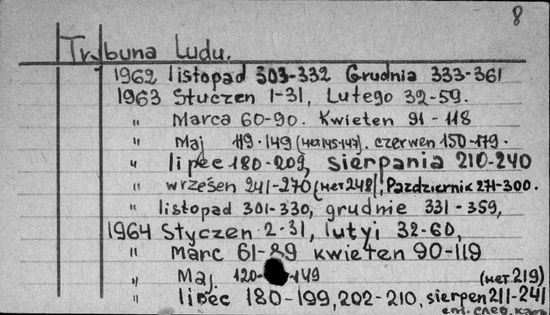 8
Trybuna Ludu.
1962 listopad 303-332 Grudnia 333-361
1963 Stuczen 1-31, Lutego 32-59.
" Marca 60-90. Kwieten 91-118
" Maj 119-149 (нет 145-147). czerwen 150-179.
" lipec 180-209, sierpania 210-240
" wrzesen 241-270 (нет 248), Pazdziernik 271-300.
" listopad 301-330, grudnie 331-359,
1964 Styczen 2-31, lutyi 32-60,
" Marc 61-89 kwieten 90-119
" Maj. 120- -149 (нет 219)
" lipec 180-199, 202-210, sierpen 211-241
см. след. карт.